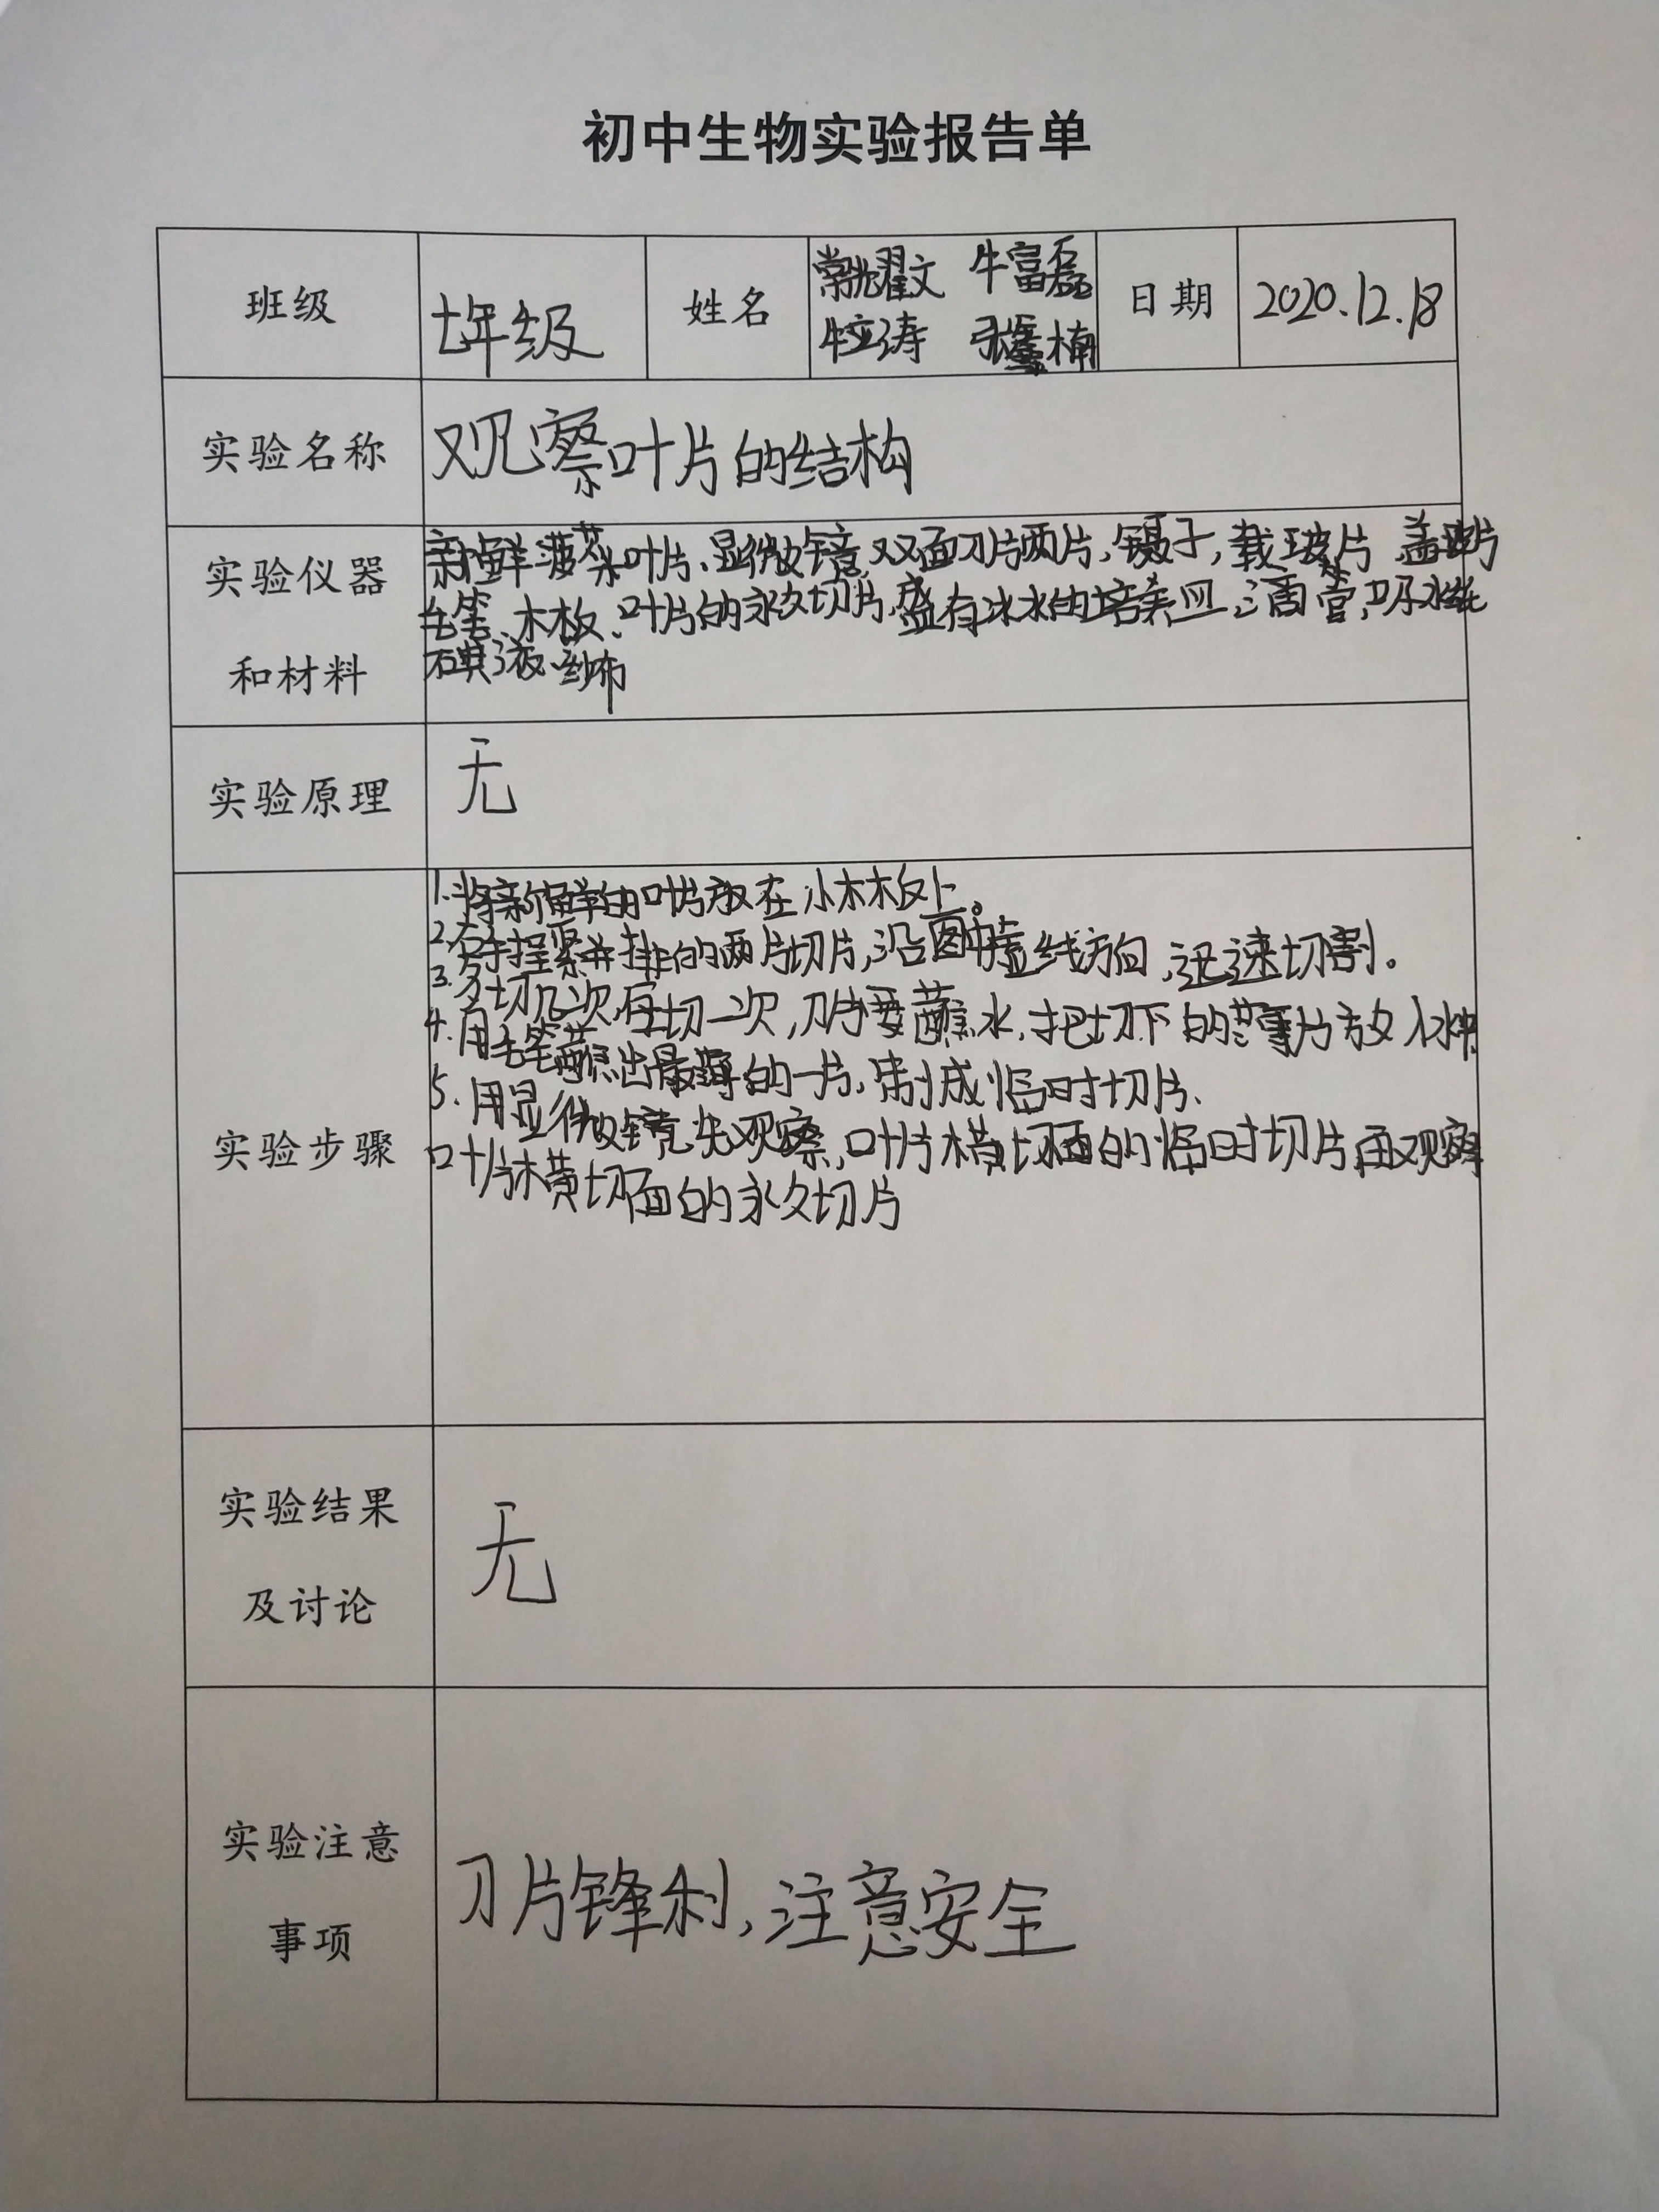 初中生物实验报告单
班级 七年级 姓名 常耀文 牛富磊 日期 2020.12.18
牛立涛 张馨楠
实验名称 观察叶片的结构
实验仪器 新鲜菠菜叶片、显微镜,双面刀片两片,镊子,载玻片 盖玻片
毛笔、木板、叶片的永久切片,盛有冰水的培养皿,滴管,吸水纸
和材料 碘液、纱布
实验原理 无
1.将新鲜的叶片放在小木板上。
2.右手捏紧并排的两片切片,沿图中虚线方向,迅速切割。
3.多切几次,每切一次,刀片要蘸水,把切下的薄片放入水中
4.用毛笔蘸出最薄的一片,制成临时切片、
5.用显微镜先观察,叶片横切面的临时切片再观察
实验步骤 叶片横切面的永久切片
实验结果
及讨论 无
实验注意
事项 刀片锋利,注意安全